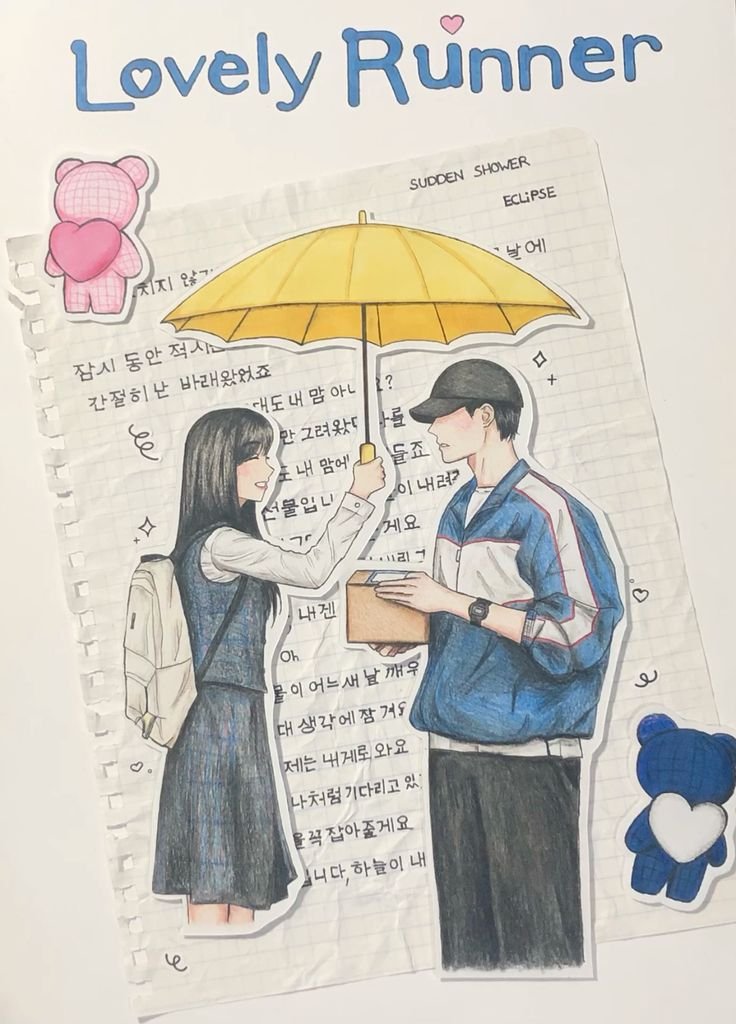 Lovely Runner
SUDDEN SHOWER
ECLIPSE
치지 않
날에
잠시 동안 적시
간절히 난 바래왔었죠
대도 내 맘 아니 요?
만 그려왔 를
도 내 맘에 들죠
선물입니 이 내려?
게요
내리
내겐
Oh
이 어느새 날 깨우
대 생각에 잠겨
제는 내게로 와요
나처럼 기다리고 있
꼭 잡아줄게요
입니다, 하늘이 내